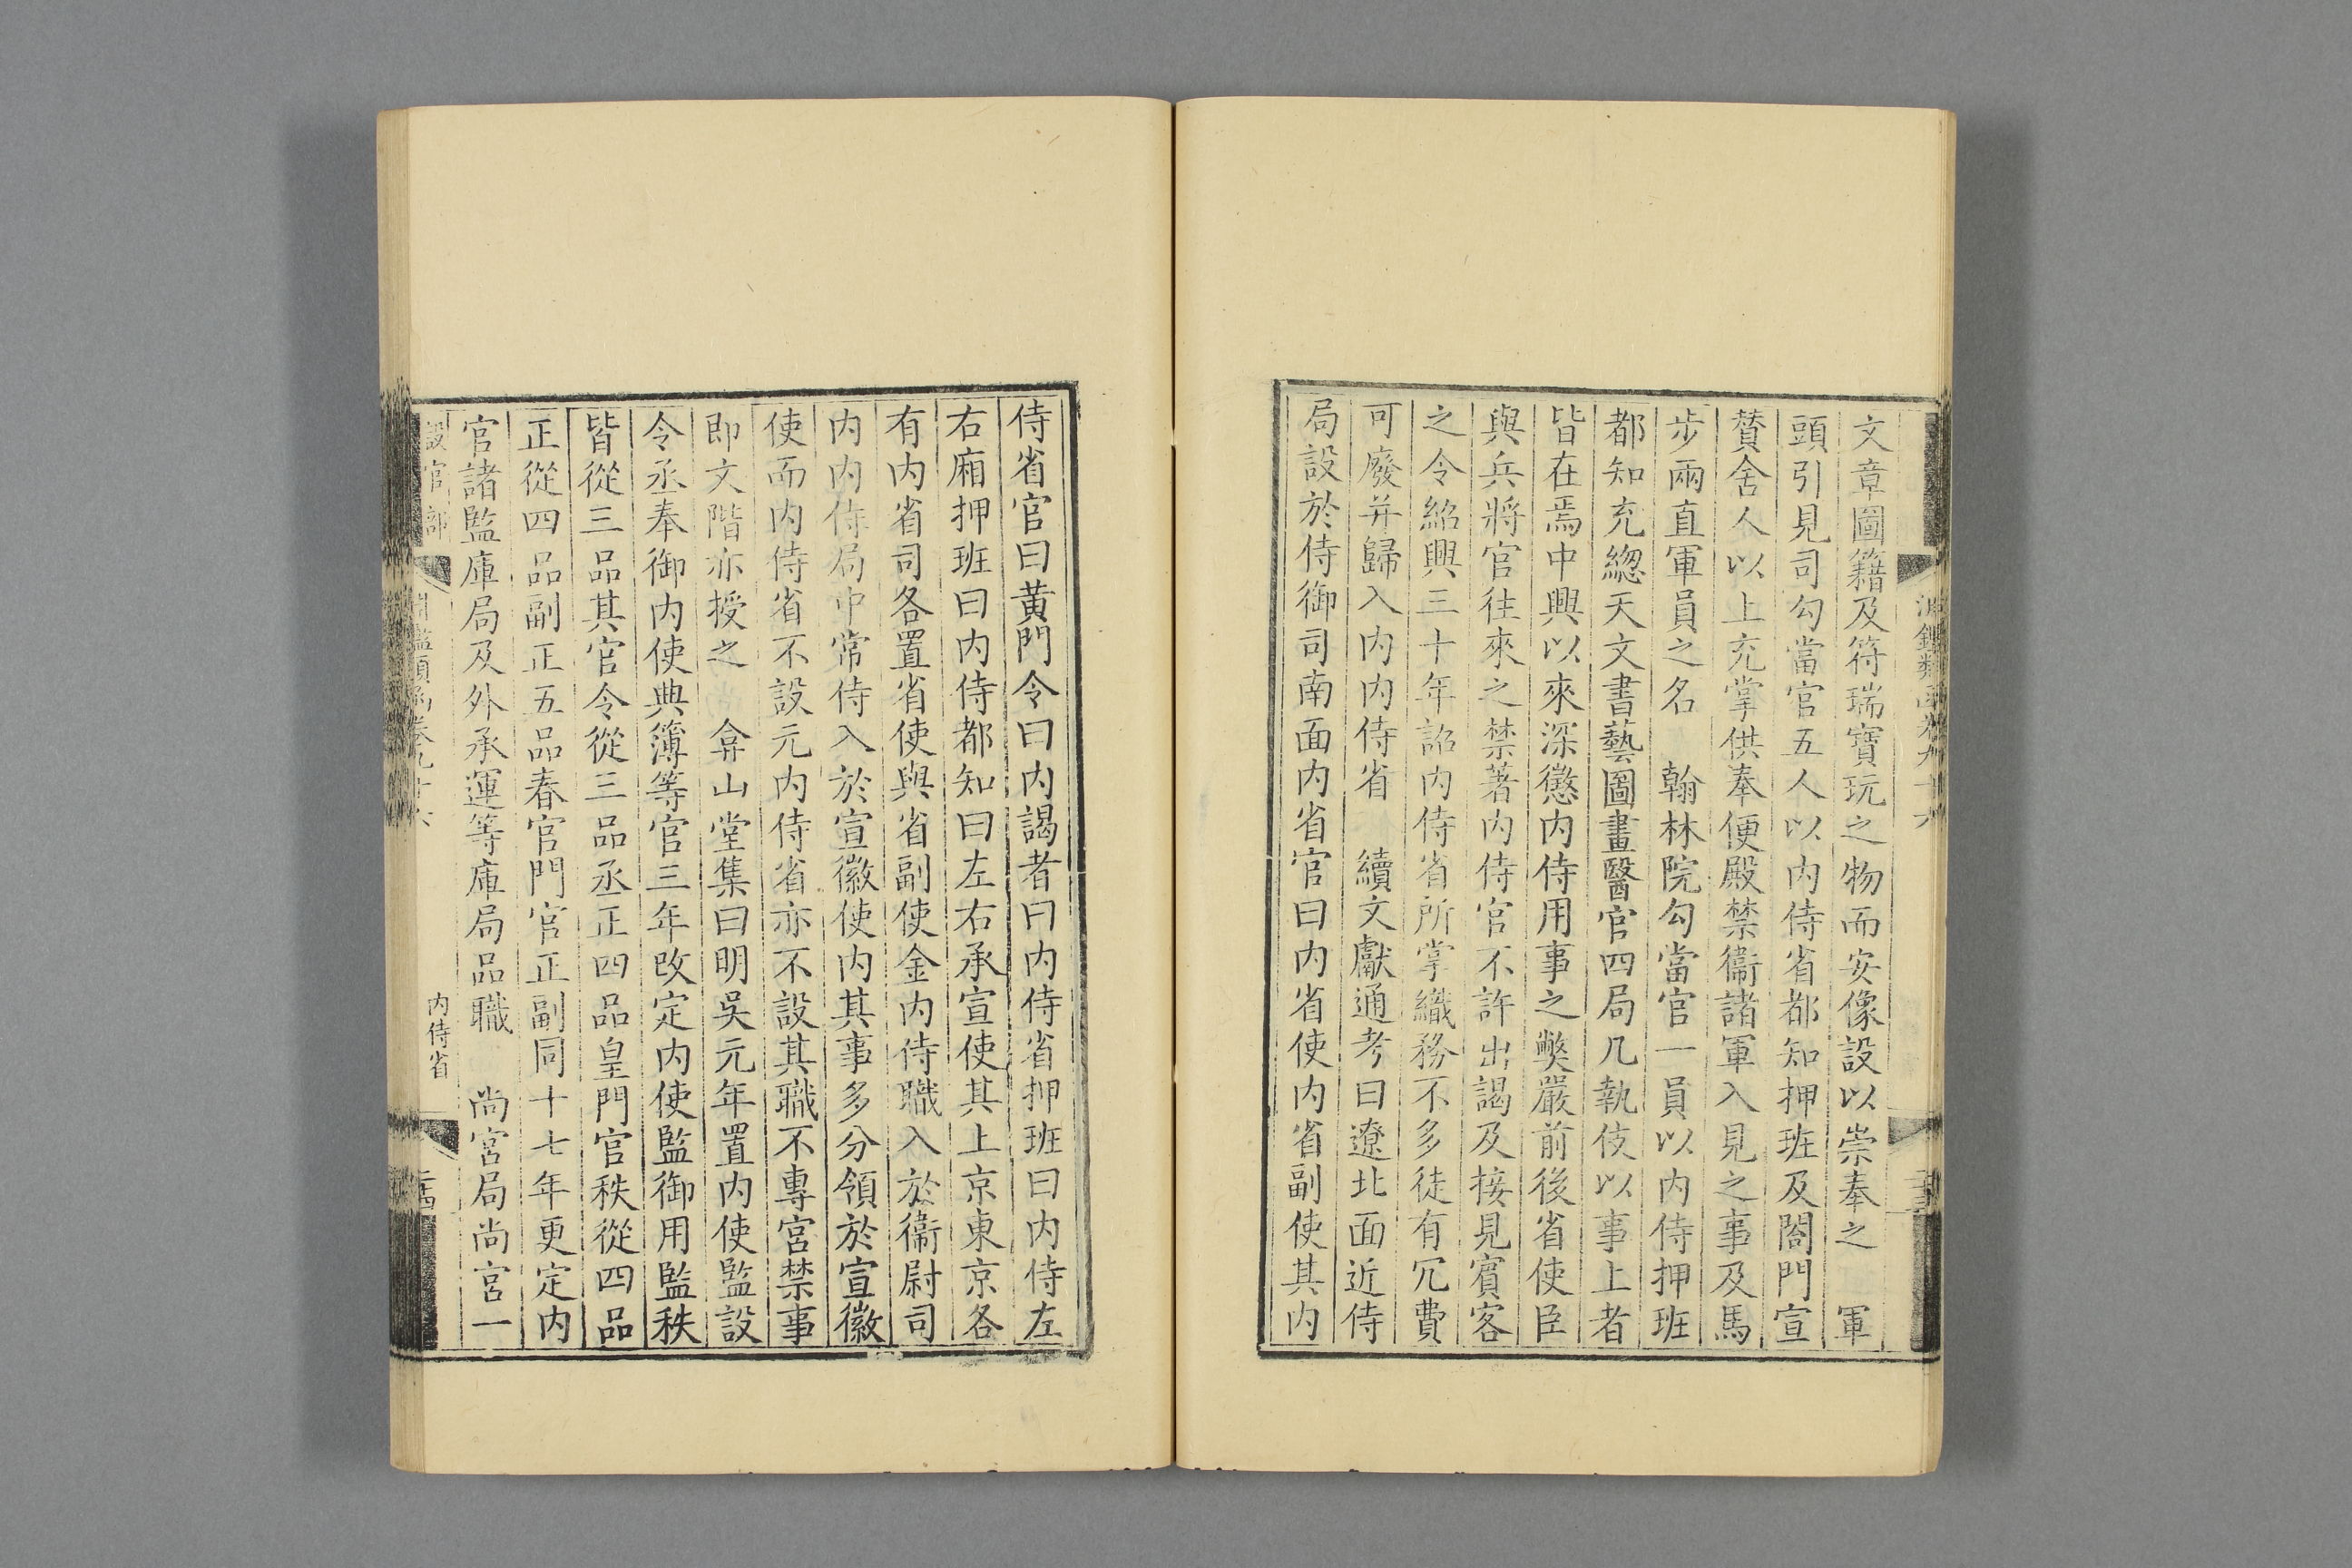 淵鑑類函卷九十六
文章圖籍及符瑞寶玩之物而安像設以崇奉之　軍
頭引見司勾當官五人以内侍省都知押班及閤門宣
賛舍人以上充掌供奉便殿禁衞諸軍入見之事及馬
步兩直軍員之名　翰林院勾當官一員以内侍押班
都知充緫天文書藝圖畫醫官四局凡執伎以事上者
皆在焉中興以來深懲内侍用事之獘嚴前後省使臣
與兵將官往來之禁著内侍官不許出謁及接見賓客
之令紹興三十年詔内侍省所掌織務不多徒有冗費
可廢并歸入内内侍省　續文獻通考曰遼北面近侍
局設於侍御司南面内省官曰内省使内省副使其内
侍省官曰黄門令曰内謁者曰内侍省押班曰内侍左
右廂押班曰内侍都知曰左右承宣使其上京東京各
有内省司各置省使與省副使金内侍職入於衞尉司
内内侍局中常侍入於宣徽使内其事多分領於宣徽
使而内侍省不設元内侍省亦不設其職不專宮禁事
即文階亦授之　弇山堂集曰明吳元年置内使監設
令丞奉御内使典簿等官三年改定内使監御用監秩
皆從三品其官令從三品丞正四品皇門官秩從四品
正從四品副正五品春官門官正副同十七年更定内
官諸監庫局及外承運等庫局品職　尚宮局尚宮一
設官部
淵鑑類函卷九十六
内侍省